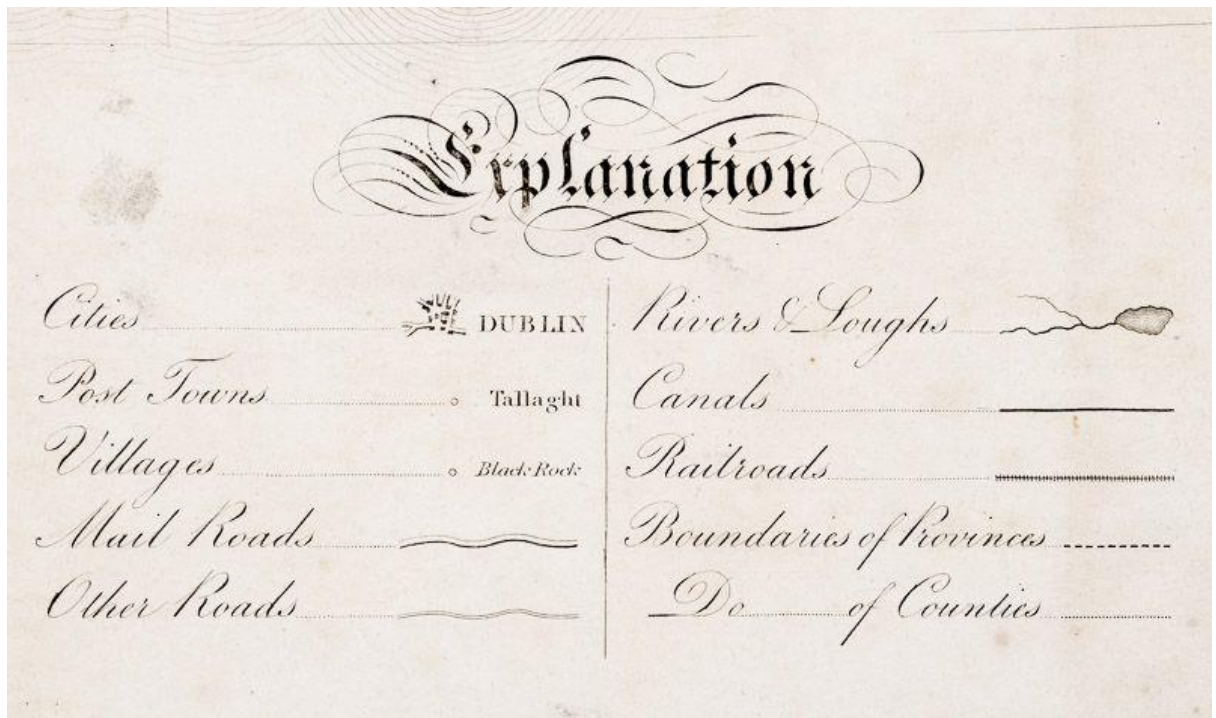 Explanation
Cities DUBLIN
Post Towns Tallaght
Villages Black Rock
Mail Roads
Other Roads
Rivers & Loughs
Canals
Railroads
Boundaries of Provinces
Do of Counties